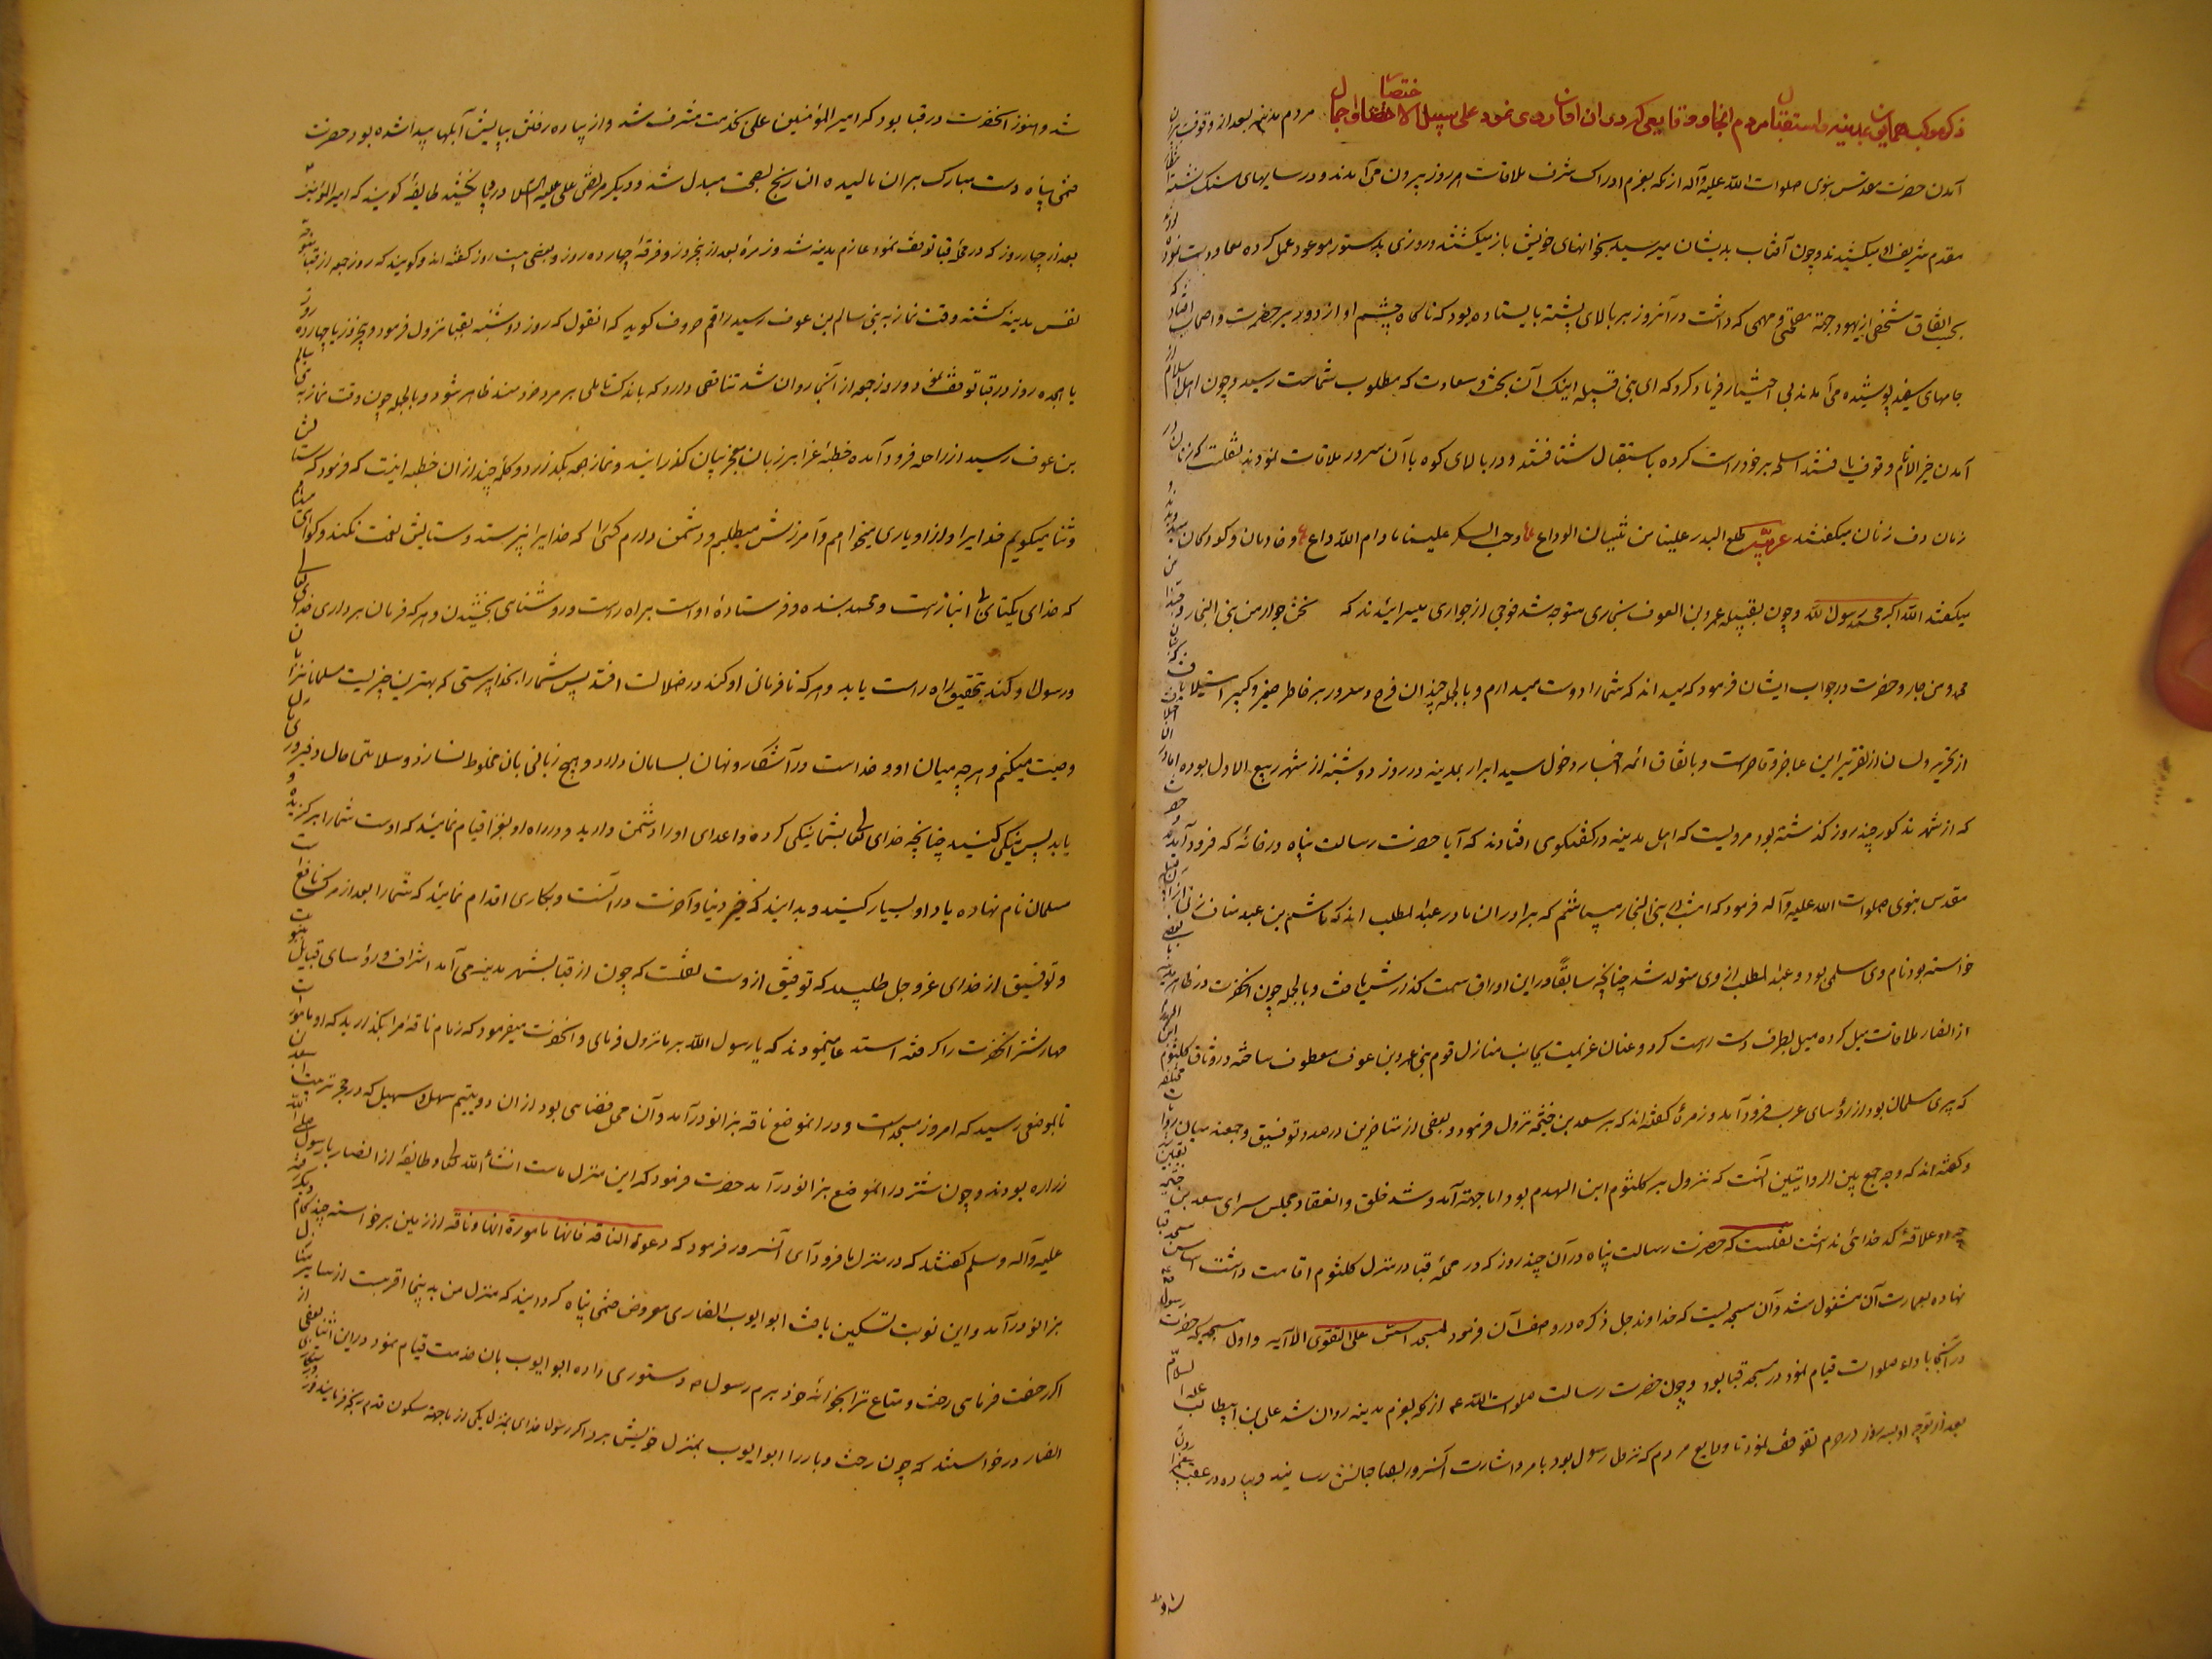 ذکر موکب همایون بمدینه و استقبال مردم انجا و وقایعی که در ان اوان روی نمود علی سبیل الاختصار و اجمال مردم مدینه بعد از وقوف بر ان
آمدن حضرت مقدس نبوی صلوات الله علیه و آله از مکه بعزم ادراک شرف ملاقات هر روز بیرون می آمدند و در سایهای سنک نشسته انتظار
مقدم شریف او میکشیدند و چون آفتاب بدیشان میرسید بخوانهای خویش باز میکشتند و روزی بدستور موعود عمل کرده معاودت نموده بودند
بحسب اتفاق شخصی از یهود جهة مصلحتی و مهمی که داشت در آنروز بر بالای پشته بایستاده بود که ناکاه چشم او از دور بر حضرت و اصحاب افتاد که
جامهای سفید پوشیده می آمدند بی اختیار فریاد کرد که ای بنی قیله اینک آن بخت و سعادت که مطلوب شماست رسید و چون اهل اسلام از
آمدن خیر الانام وقوف یافتند اسلحه بر خود راست کرده باستقبال شتافتند و در بالای کوه با آن سرور ملاقات نمودند نقلست که زنان در
زمان دف زنان میکفتند عربیه طلع البدر علینا من ثنیات الوداع وجب الشکر علینا ما دام الله داع و خادمان و کودکان
میکفتند الله اکبر محمد رسول الله و چون بقبیله عمرو بن العوف متوجه شد فوجی از جواری میسرائیدند که نحن جوار من بنی النجار
محمد من جار و حضرت در جواب ایشان فرمود که میداند که شما را دوست میدارم و بالجمله چندان فرح و سرور بر خاطر صغیر و کبیر استیلا یافت که
از تحریر و لسان از تقریر این عاجز و قاصرست و باتفاق ائمه اخبار دخول سید ابرار بمدینه در روز دوشنبه از شهر ربیع الاول بوده اما در
که از شهر مذکور چند روز گذشته بود مرویست که اهل مدینه در کفتکوی افتادند که آیا حضرت رسالت پناه در خانهٔ که فرود آید
مقدس نبوی صلوات الله علیه و آله فرمود که امشب بنی النجار میباشم که برادران مادر عبد المطلب اند که هاشم بن عبد مناف
خواسته بود نام وی سلمی بود و عبد المطلب از وی متولد شد چنانچه سابقاً در این اوراق سمت گذارش یافت و بالجمله چون انحضرت در ظاهر مدینه
از انصار ملاقات میل کرده میل بطرف دست راست کرد و عنان عزیمت بجانب منازل قوم بنی عمرو بن عوف معطوف ساخته در وثاق کلثوم ابن الهدم
که پیری مسلمان بود از رؤسای عرب فرود آمد و زمرهٔ کفته اند که بر سعد بن خیثمه نزول فرمود و بعضی از متاخرین در صدد توفیق و جمع میان روایات مختلفه
و کفته اند که وجه جمع بین الروایتین آنست که نزول بر کلثوم ابن الهدم بود اما جهة آمد و شد خلق و انعقاد مجلس سرای سعد بن خیثمه
چه او علاقهٔ کدخدائی نداشت نقلست که حضرت رسالت پناه در آن چند روز که در محلهٔ قبا در منزل کلثوم اقامت داشت اساس مسجد قبا
نهاده بعمارت آن مشغول شد و آن مسجدیست که خداوند جل ذکره در وصف آن فرمود لمسجد اسس علی التقوی الایه و اول مسجدی که حضرت رسول
در آنجا باداء صلوات قیام نمود در مسجد قبا بود و چون حضرت رسالت صلوات الله علیه از مکه بعزم مدینه روان شد علی بن ابیطالب علیه السلام
بعد از توجه او سه روز در حرم توقف نمود تا ودایع مردم که نزد رسول بود بامر و اشارت آنسرور بصاحبانش رسانید و پیاده در عقب
شد و هنوز انحضرت در قبا بود که امیر المؤمنین علی بخدمت مشرف شد و از پیاده رفتن بپایش آبلها پیدا شده بود حضرت
ختمی پناه دست مبارک بر ان مالیده ان رنج بصحت مبدل شد و دیکر مرتضی علی علیه السلام طایفهٔ کویند که امیر المؤمنین
بعد از چهار روز که در محلهٔ قبا توقف نمود عازم مدینه شد و زمرهٔ بعد از پنج روز و فرقهٔ چهارده روز و بعضی بیست روز کفته اند و کویند که روز جمعه از قبا متوجه
نفس مدینه کشته وقت نماز به بنی سالم بن عوف رسید راقم حروف کوید که انقول که روز دوشنبه بقبا نزول فرمود و پنجروز یا چهارده روز
یا هجده روز در قبا توقف نمود و روز جمعه از آنجا روان شد تناقضی دارد که باندک تاملی بر مرد خردمند ظاهر شود و بالجمله چون وقت نماز به بنی سالم
بن عوف رسید از راحله فرود آمده خطبهٔ غرا بر زبان معجز بیان کذرانید و نماز جمعه بگذارد و کلمهٔ چند از ان خطبه اینست که فرمود که ستایش
و ثنا میکویم خدایرا و از او یاری میخواهم و آمرزش میطلبم و دشمن دارم کسی را که خدایرا نپرستد و ستایش نعمت نکند و کواهی میدهم
که خدای یکتای بی انبازست و محمد بنده و فرستادهٔ اوست براه راست و روشنائی بخشیدن و هر که فرمان برداری خدای تعالی
و رسول او کند بتحقیق راه راست یابد و هر که نافرمانی او کند در ضلالت افتد پس شما را بخدا پرستی که بهترین چیزیست مسلمانانرا بان
وصیت میکنم و هر چه میان او و خداست در آشکار و نهان بسامان دارد و هیچ زبانی بان مخلوط نسازد و سلامتی حال و فیروزی
یابد پس نیکی کنید چنانچه خدای تعالی بشما نیکی کرده و اعدای او را دشمن دارید و در راه او بغزا قیام نمائید که اوست شما را برکزیده و
مسلمان نام نهاده یاد او بسیار کنید و بدانید که خیر دنیا و آخرت در آنست و بکاری اقدام نمائید که شما را بعد از مرک نافع
و توفیق از خدای عز و جل طلبید که توفیق ازوست نقلست که چون از قبا بشهر مدینه می آمد اشراف و رؤسای قبایل
مهار شتر انحضرت را کرفته استدعا مینمودند که یا رسول الله بر ما نزول فرمای و انحضرت میفرمود که زمام ناقه مرا بگذارید که او مامورست
تا بموضعی رسید که امروز مسجد است و در انموضع ناقه بزانو در آمد و آن محل فضائی بود از ان دو یتیم سهل و سهیل که در حجر تربیت اسعد بن
زراره بودند و چون شتر در انموضع بزانو در آمد حضرت فرمود که این منزل ماست انشاء الله تعالی و طایفهٔ از انصار یا رسول الله صلی الله
علیه و آله و سلم کفتند که در منزل ما فرود آی آنسرور فرمود که دعوة الناقه فانها مامورة انها و ناقه از زمین برخواسته چند کام دیکر رفته
بزانو در آمد و این نوبت تسکین یافت ابو ایوب انصاری معروض ختمی پناه کردانید که منزل من بدینجا اقربست از سایر منازل
اکر رخصت فرمائی رخت و متاع ترا بخوانهٔ خود برم رسول صه دستوری داده ابو ایوب بان خدمت قیام نمود در این اثنا بعضی از
انصار درخواستند که چون رخت و بار را ابو ایوب بمنزل خویش برد اکر رسول خدای بمنزل یکی از ما جهة سکون قدم رنجه فرمایند